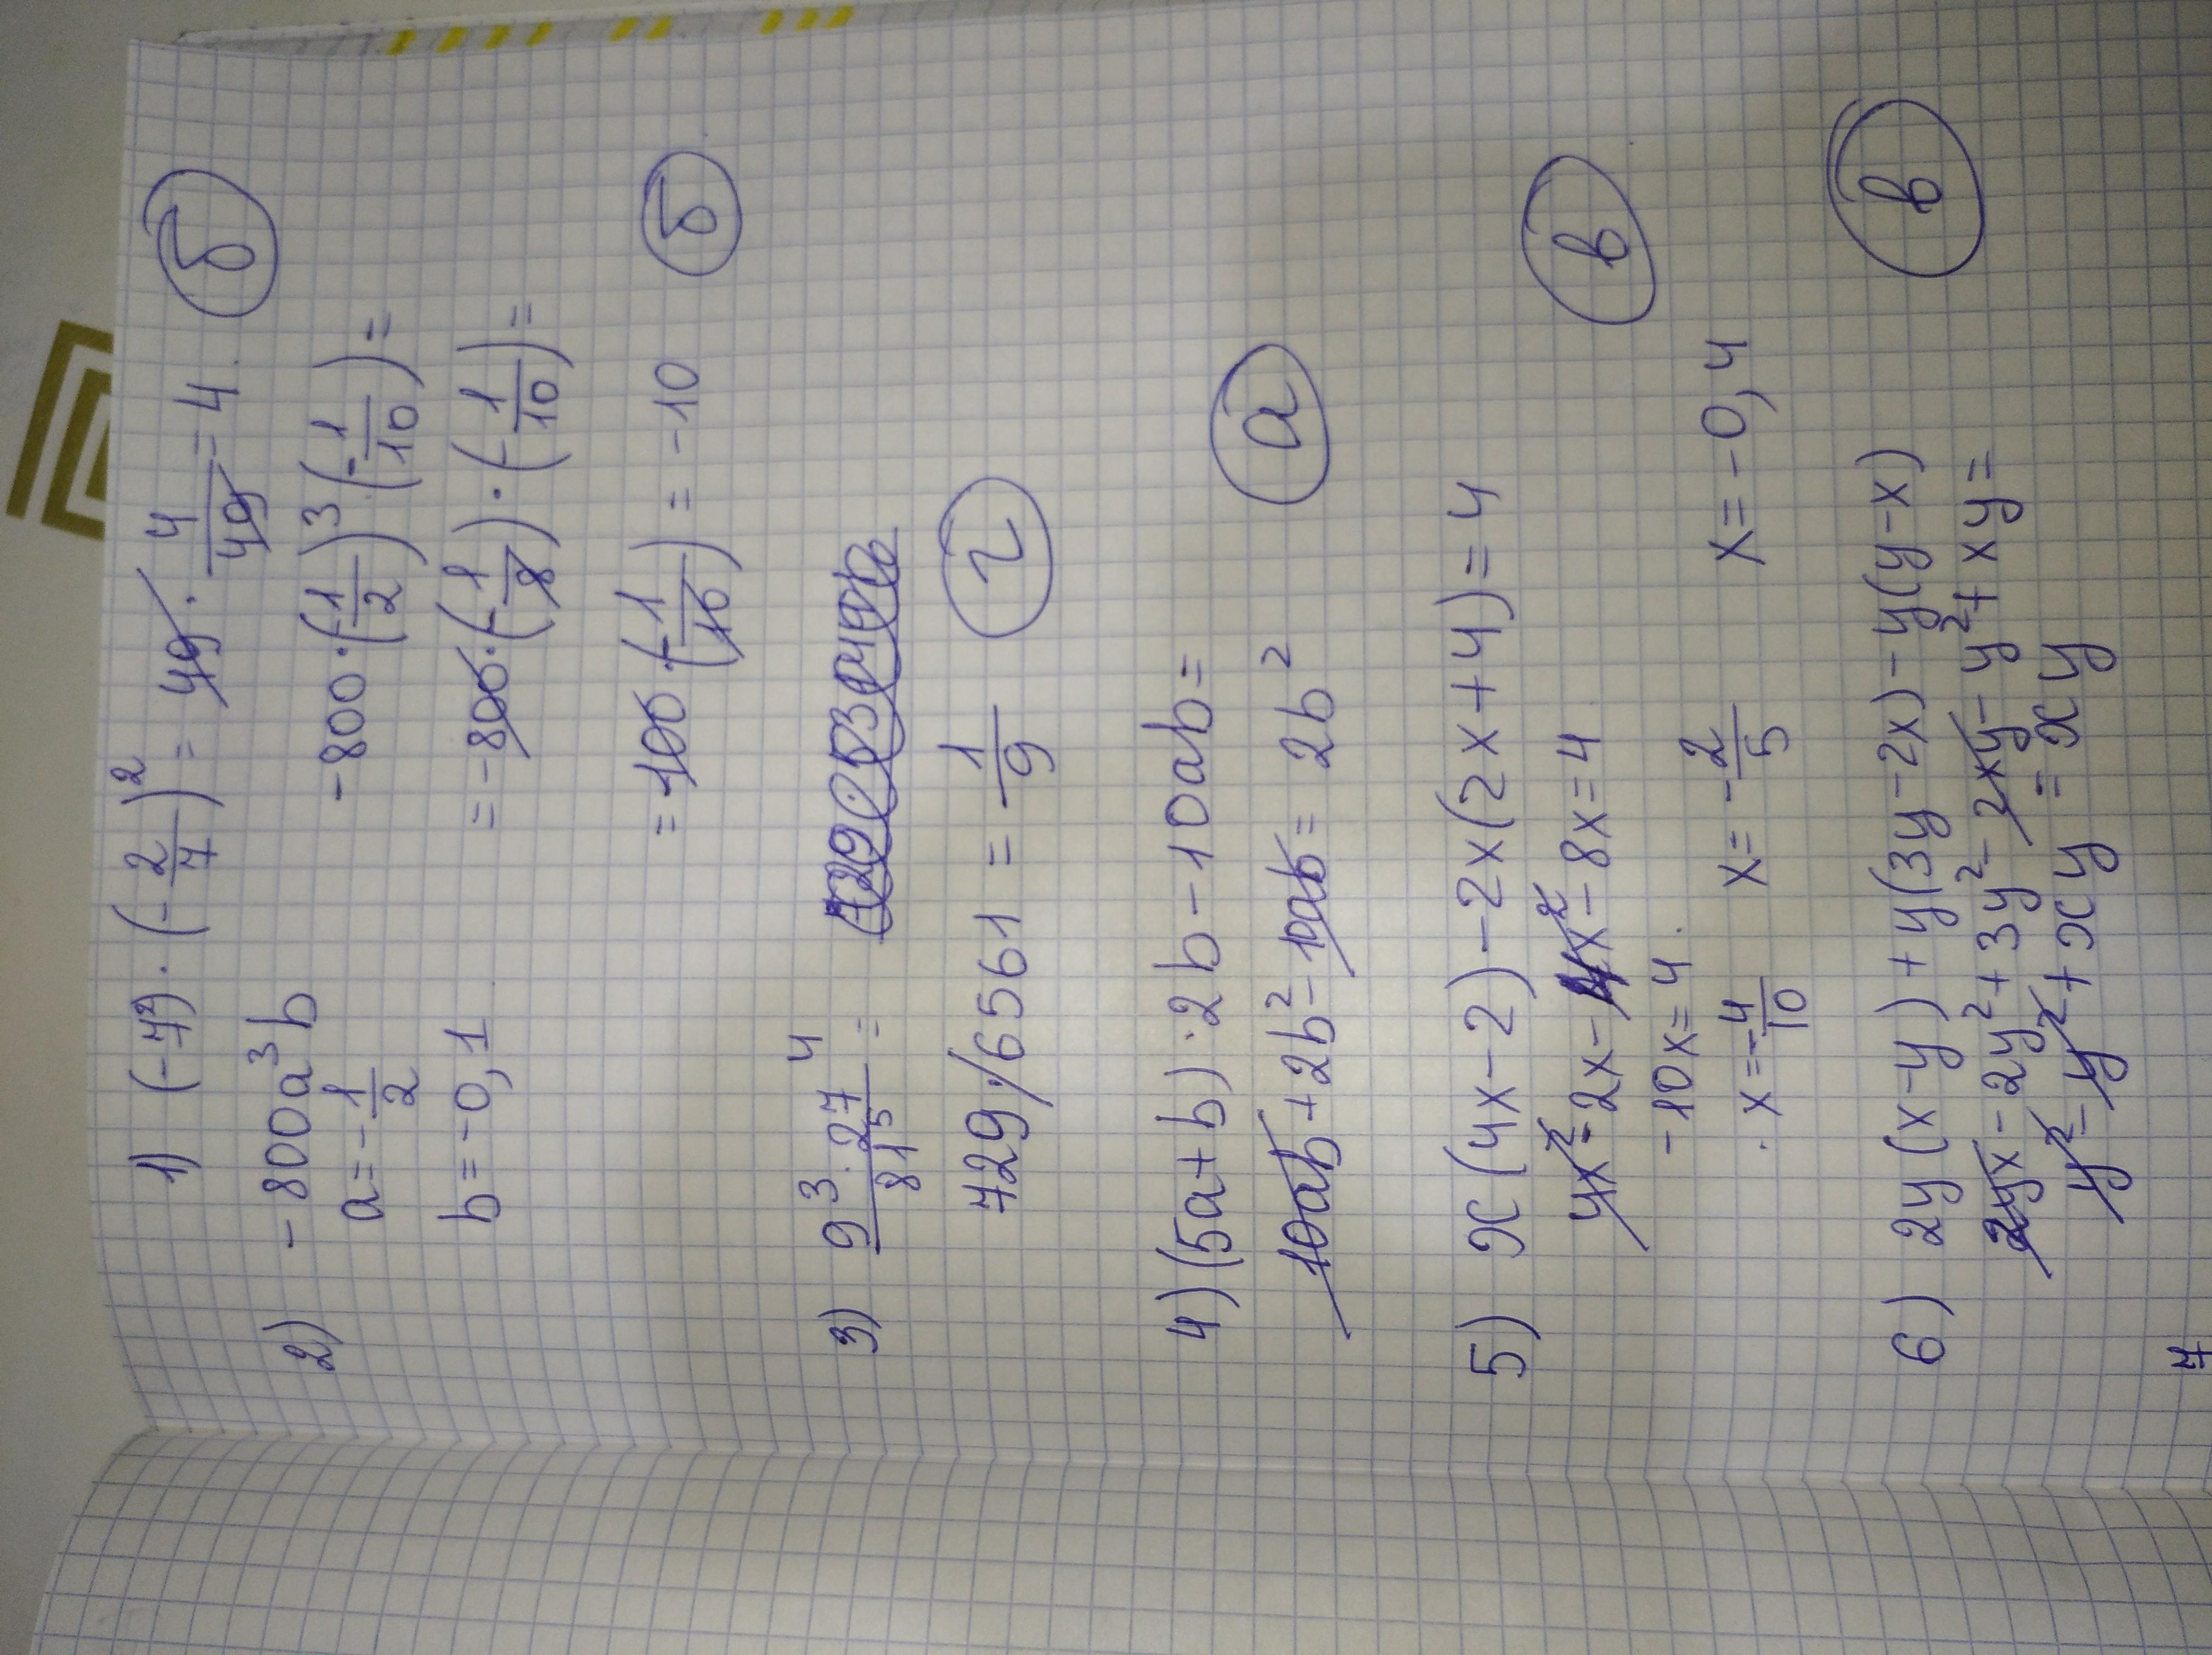 1) (-7²)·(-2/7)² = 49·4/49 = 4. б
2) -800a³b
a = -1/2
b = -0,1
-800·(-1/2)³(-1/10) =
= -800·(-1/8)·(-1/10) =
= 100·(-1/10) = -10 б
3) 9³·27⁴/81⁵ =
729·/6561 = 1/9 г
4) (5a+b)·2b-10ab =
10ab+2b²-10ab = 2b² а
5) x(4x-2)-2x(2x+4)=4
4x²-2x-4x²-8x=4 в
-10x=4.
x=-4/10 x=-2/5 x=-0,4
6) 2y(x-y)+y(3y-2x)-y(y-x)
2yx-2y²+3y²-2xy-y²+xy=
y²-y²+xy=xy в
7